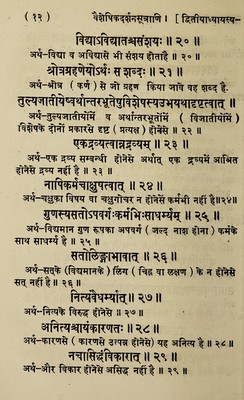 ( १२ ) वैशेषिकदर्शनसूत्राणि । [ द्वितीयाध्यायस्य-
विद्याऽविद्यातश्चसंशयः ॥ २० ॥
अर्थ-विद्या व अविद्यासे भी संशय होताहै ॥ २० ॥
श्रोत्रग्रहणेयोर्थः स शब्दः ॥ २१ ॥
अर्थ-श्रोत्र ( कर्ण ) से जो ग्रहण किया जावे वह शब्द है.
तुल्यजातीयेष्वर्थान्तरभूतेषुविशेषस्यउभयथादृष्टत्वात् ॥
अर्थ-तुल्यजातीयोंमें व अर्थान्तरभूतोंमें ( विजातीयोंमें )
विशेषके दोनों प्रकारसे दृष्ट ( प्रत्यक्ष ) होनेसे ॥ २२ ॥
एकद्रव्यत्वान्नद्रव्यम् ॥ २३ ॥
अर्थ-एक द्रव्य सम्बन्धी होनेसे अर्थात् एक द्रव्यमें आश्रित
होनेसे द्रव्य नहीं है ॥ २३ ॥
नापिकर्माचाक्षुषत्वात् ॥ २४ ॥
अर्थ-चक्षुका विषय वा चक्षुगोचर न होनेसे कर्मभी नहीं है॥२४॥
गुणस्यसतोऽपवर्गःकर्मभिःसाधर्म्यम् ॥ २५ ॥
अर्थ-विद्यमान गुण रूपका अपवर्ग ( जल्द नाश होना ) कर्मके
साथ साधर्म्य है ॥ २५ ॥
सतोलिङ्गाभावात् ॥ २६ ॥
अर्थ-सत्के (विद्यमानके) लिंग ( चिह्न वा लक्षण ) के न होनेसे
सत् नहीं है ॥ २६ ॥
नित्यवैधर्म्यात् ॥ २७ ॥
अर्थ-नित्यके विरुद्ध होनेसे ॥ २७ ॥
अनित्यश्चायंकारणतः ॥ २८ ॥
अर्थ-कारणसे ( कारणसे उत्पन्न होनेसे) यह अनित्य है ॥ २८ ॥
नचासिद्धंविकारात् ॥ २९ ॥
अर्थ-और विकार होनेसे असिद्ध नहीं है ॥ २९ ॥